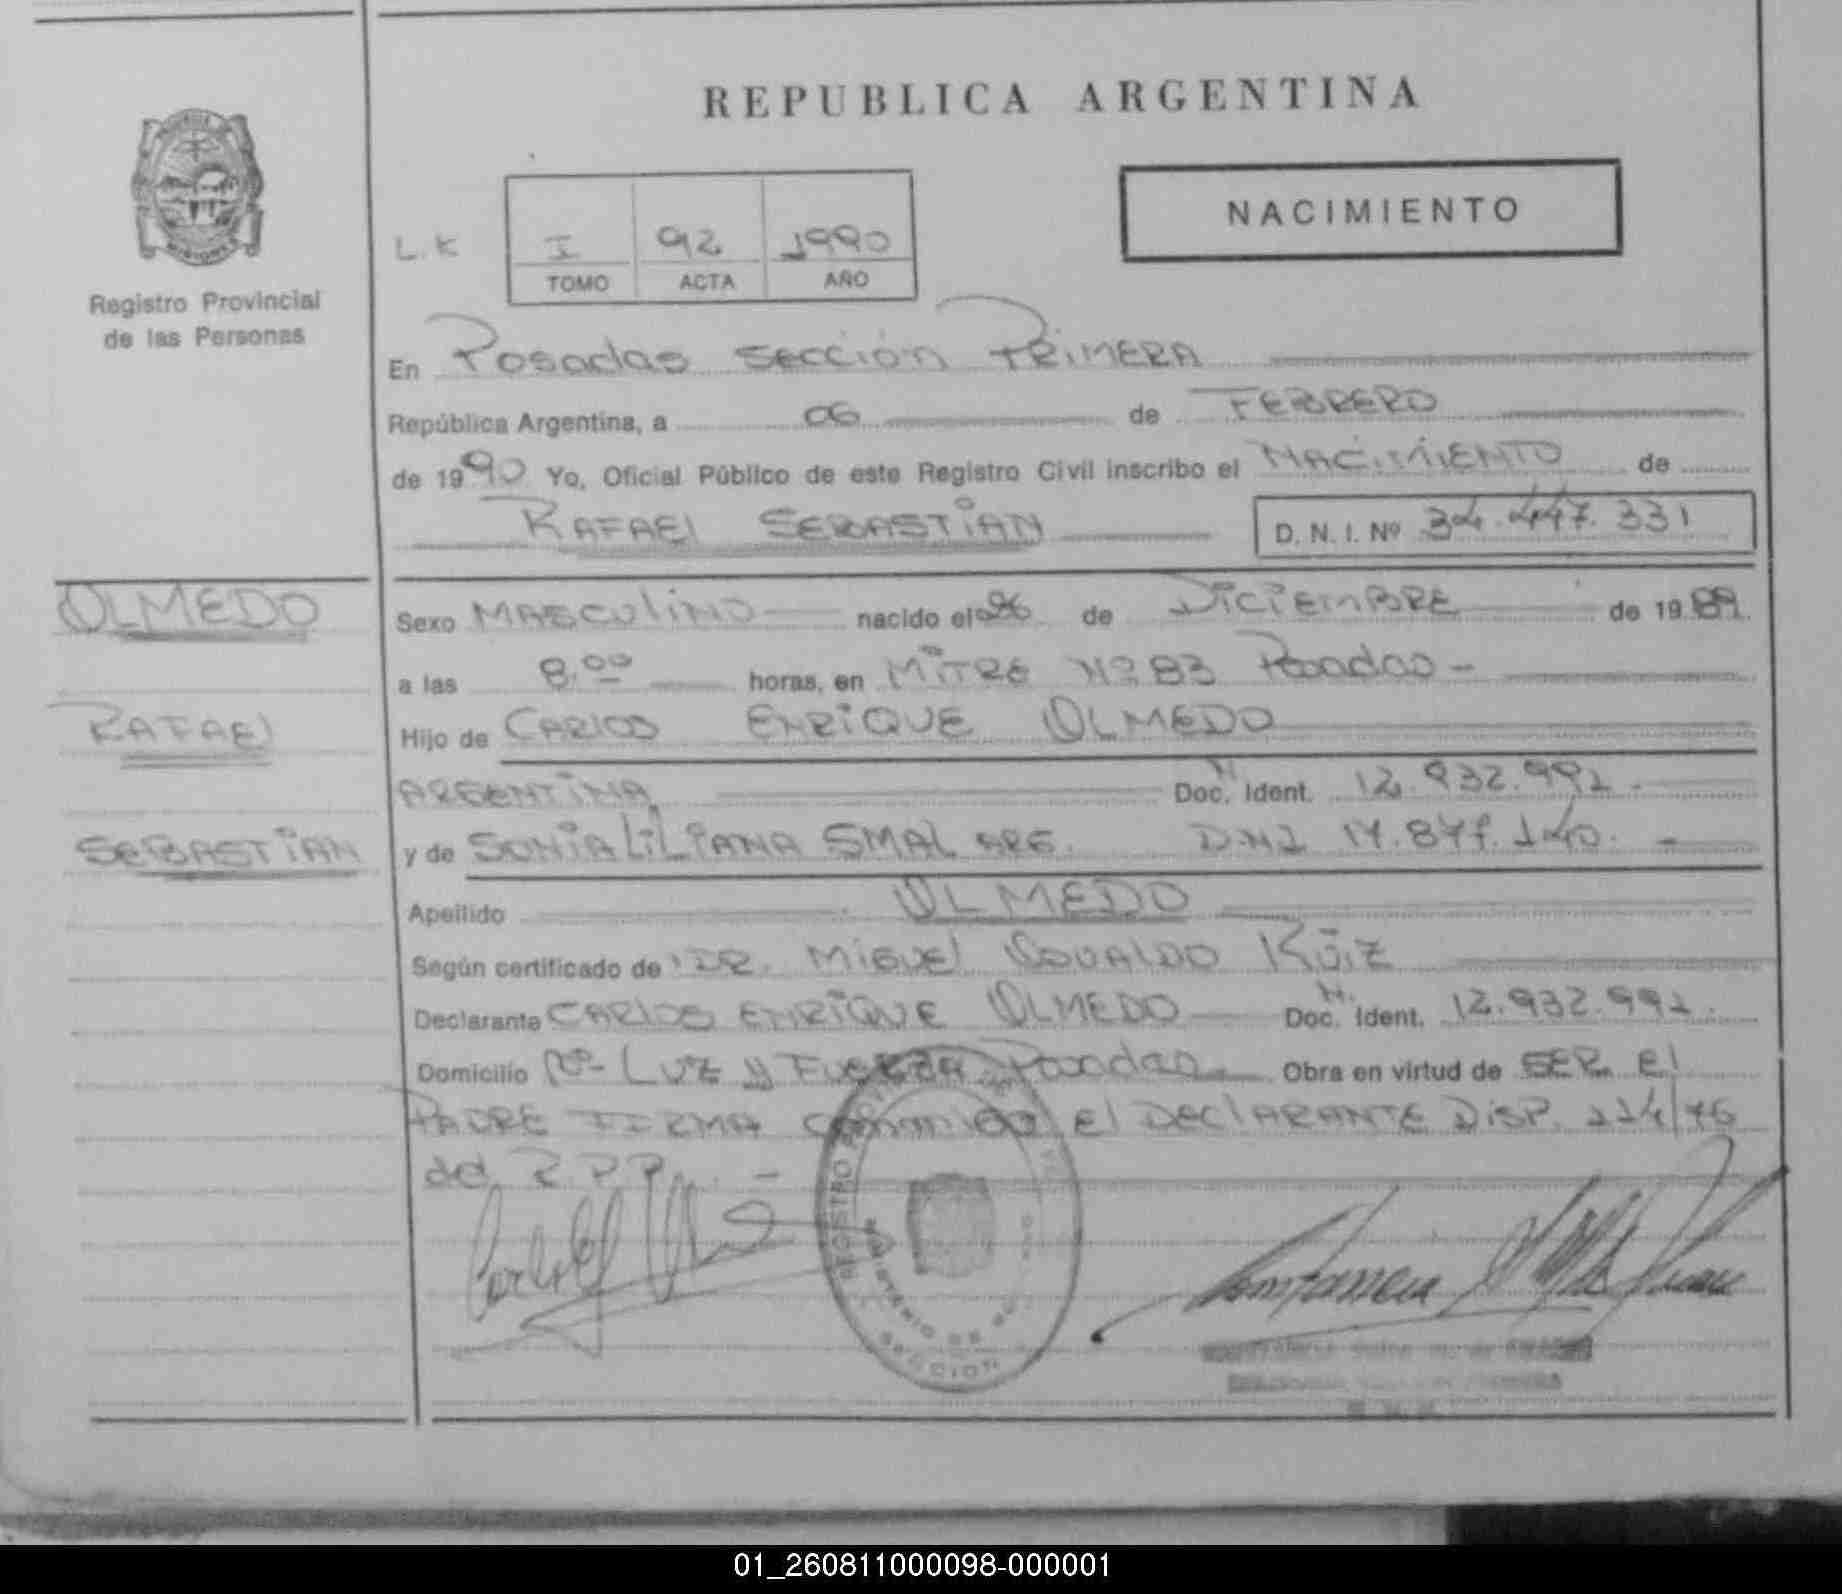 REPUBLICA ARGENTINA
NACIMIENTO
L.K I 92 1990
TOMO ACTA AÑO
Registro Provincial
de las Personas
En Posadas Sección PRIMERA
República Argentina, a 06 de FEBRERO
de 1990 Yo, Oficial Público de este Registro Civil inscribo el NACIMIENTO de
RAFAEL SEBASTIAN D. N. I. Nº 34.447.331
OLMEDO
RAFAEL
SEBASTIAN
Sexo MASCULINO nacido el de DICIEMBRE de 1989.
a las 8,00 horas, en MITRE Nº 83 Posadas -
Hijo de CARLOS ENRIQUE OLMEDO
ARGENTINA Doc. Ident. 12.932.992 -
y de SONIA LILIANA SMAL ARG. D.N.I 17.877.140. -
Apellido OLMEDO
Según certificado de DR. MIGUEL OSVALDO RUIZ
Declarante CARLOS ENRIQUE OLMEDO Doc. Ident. 12.932.992.
Domicilio Bº- LUZ y FUERZA Posadas Obra en virtud de SER El
PADRE FIRMA conmigo El DEClARANTE DISP. 114/76
del R.P.P. -
REGISTRO
MINISTERIO DE
SECCION
01_260811000098-000001